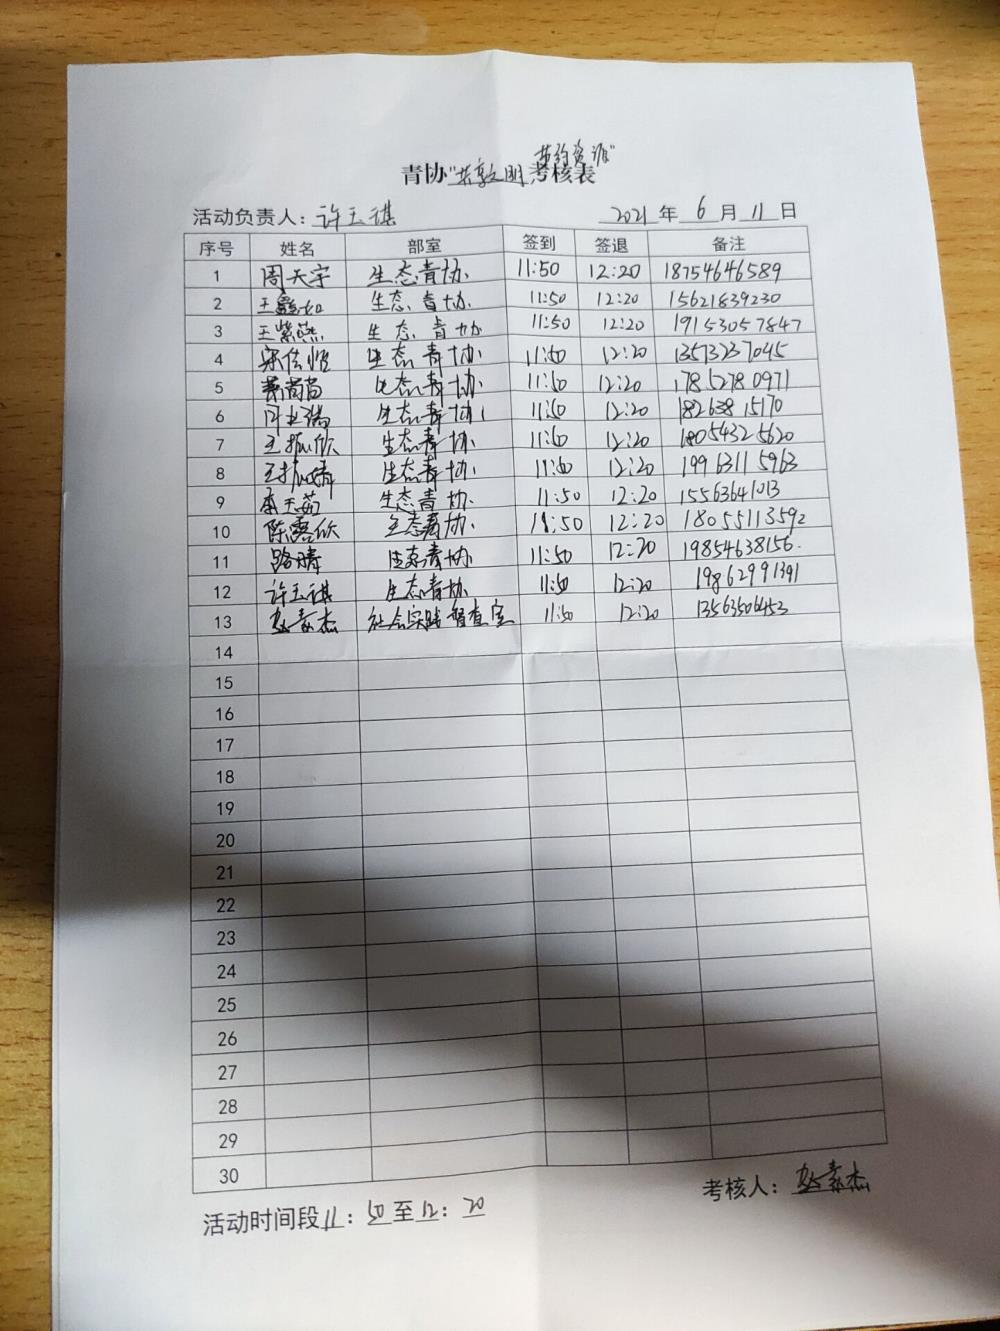 节约资源"
青协"共享文明,考核表
活动负责人: 许玉祺 2021 年 6 月 11 日
序号 姓名 部室 签到 签退 备注
1 周天宇 生态青协 11:50 12:20 18754646589
2 王鑫如 生态青协 11:50 12:20 15621839230
3 王紫燕 生态青协 11:50 12:20 19153057847
4 宋佳恒 生态青协 11:50 12:20 13573237045
5 生态青协 11:50 12:20 17852780971
6 生态青协 11:50 12:20 18263815170
7 王振欣 生态青协 11:50 12:20 18054325620
8 王振婧 生态青协 11:50 12:20 19963115963
9 李玉茹 生态青协 11:50 12:20 15563641013
10 陈露欣 生态青协 11:50 12:20 18055113592
11 路晴 生态青协 11:50 12:20 19854638156.
12 许玉祺 生态青协 11:50 12:20 19862991391
13 赵素杰 社会实践督查室 11:50 12:20 13563506453
14
15
16
17
18
19
20
21
22
23
24
25
26
27
28
29
30
考核人: 赵素杰
活动时间段 11: 50 至 12: 20